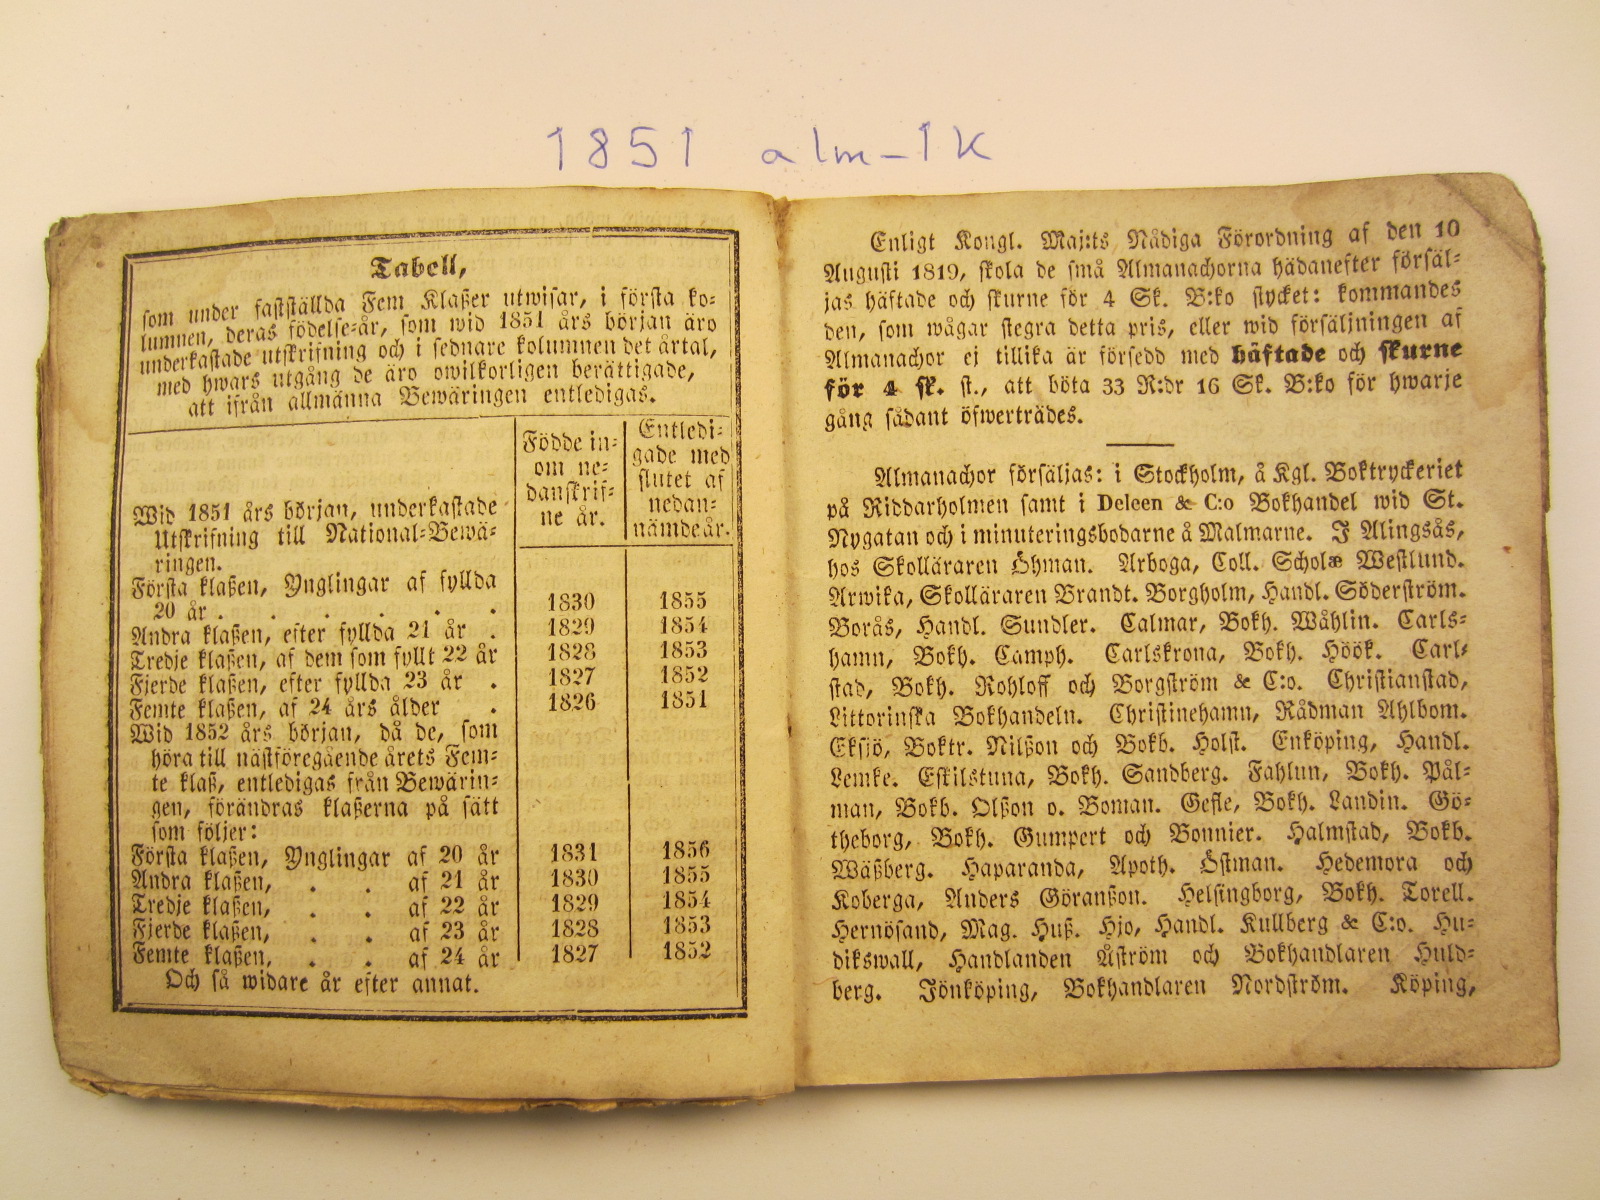 1851 alm-1k
Tabell,
som under fastställda Fem Klaßer utwisar, i första ko-
lumnen, deras födelse-år, som wid 1851 års början äro
underkastade utskrifning och i sednare kolumnen det årtal,
med hwars utgång de äro owilkorligen berättigade,
att ifrån allmänna Bewäringen entledigas.
Födde in-
om ne-
danskrif-
ne år.
Entledi-
gade med
slutet af
nedan-
nämde år.
Wid 1851 års början, underkastade
Utskrifning till National-Bewä-
ringen.
Första klaßen, Ynglingar af fyllda
20 år . . . . . . 1830 1855
Andra klaßen, efter fyllda 21 år . 1829 1854
Tredje klaßen, af dem som fyllt 22 år 1828 1853
Fjerde klaßen, efter fyllda 23 år . 1827 1852
Femte klaßen, af 24 års ålder . 1826 1851
Wid 1852 års början, då de, som
höra till nästföregående årets Fem-
te klaß, entledigas från Bewärin-
gen, förändras klaßerna på sätt
som följer:
Första klaßen, Ynglingar af 20 år 1831 1856
Andra klaßen, . . af 21 år 1830 1855
Tredje klaßen, . . af 22 år 1829 1854
Fjerde klaßen, . . af 23 år 1828 1853
Femte klaßen, . . af 24 år 1827 1852
Och så widare år efter annat.
Enligt Kongl. Maj:ts Nådiga Förordning af den 10
Augusti 1819, skola de små Almanachorna hädanefter försäl-
jas häftade och skurne för 4 Sk. B:ko stycket: kommandes
den, som wågar stegra detta pris, eller wid försäljningen af
Almanachor ej tillika är försedd med häftade och skurne
för 4 sk. st., att böta 33 R:dr 16 Sk. B:ko för hwarje
gång sådant öfwerträdes.
Almanachor försäljas: i Stockholm, å Kgl. Boktryckeriet
på Riddarholmen samt i Deleen & C:o Bokhandel wid St.
Nygatan och i minuteringsbodarne å Malmarne. I Alingsås,
hos Skolläraren Öhman. Arboga, Coll. Scholæ Westlund.
Arwika, Skolläraren Brandt. Borgholm, Handl. Söderström.
Borås, Handl. Sundler. Calmar, Bokh. Wåhlin. Carls-
hamn, Bokh. Camph. Carlskrona, Bokh. Höök. Carl-
stad, Bokh. Rohloff och Borgström & C:o. Christianstad,
Littorinska Bokhandeln. Christinehamn, Rådman Ahlbom.
Eksjö, Boktr. Nilßon och Bokb. Holst. Enköping, Handl.
Lemke. Eskilstuna, Bokh. Sandberg. Fahlun, Bokh. Pål-
man, Bokb. Olßon o. Boman. Gefle, Bokh. Landin. Gö-
theborg, Bokh. Gumpert och Bonnier. Halmstad, Bokb.
Wäßberg. Haparanda, Apoth. Östman. Hedemora och
Koberga, Anders Göranßon. Helsingborg, Bokh. Torell.
Hernösand, Mag. Huß. Hjo, Handl. Kullberg & C:o. Hu-
dikswall, Handlanden Åström och Bokhandlaren Huld-
berg. Jönköping, Bokhandlaren Nordström. Köping,